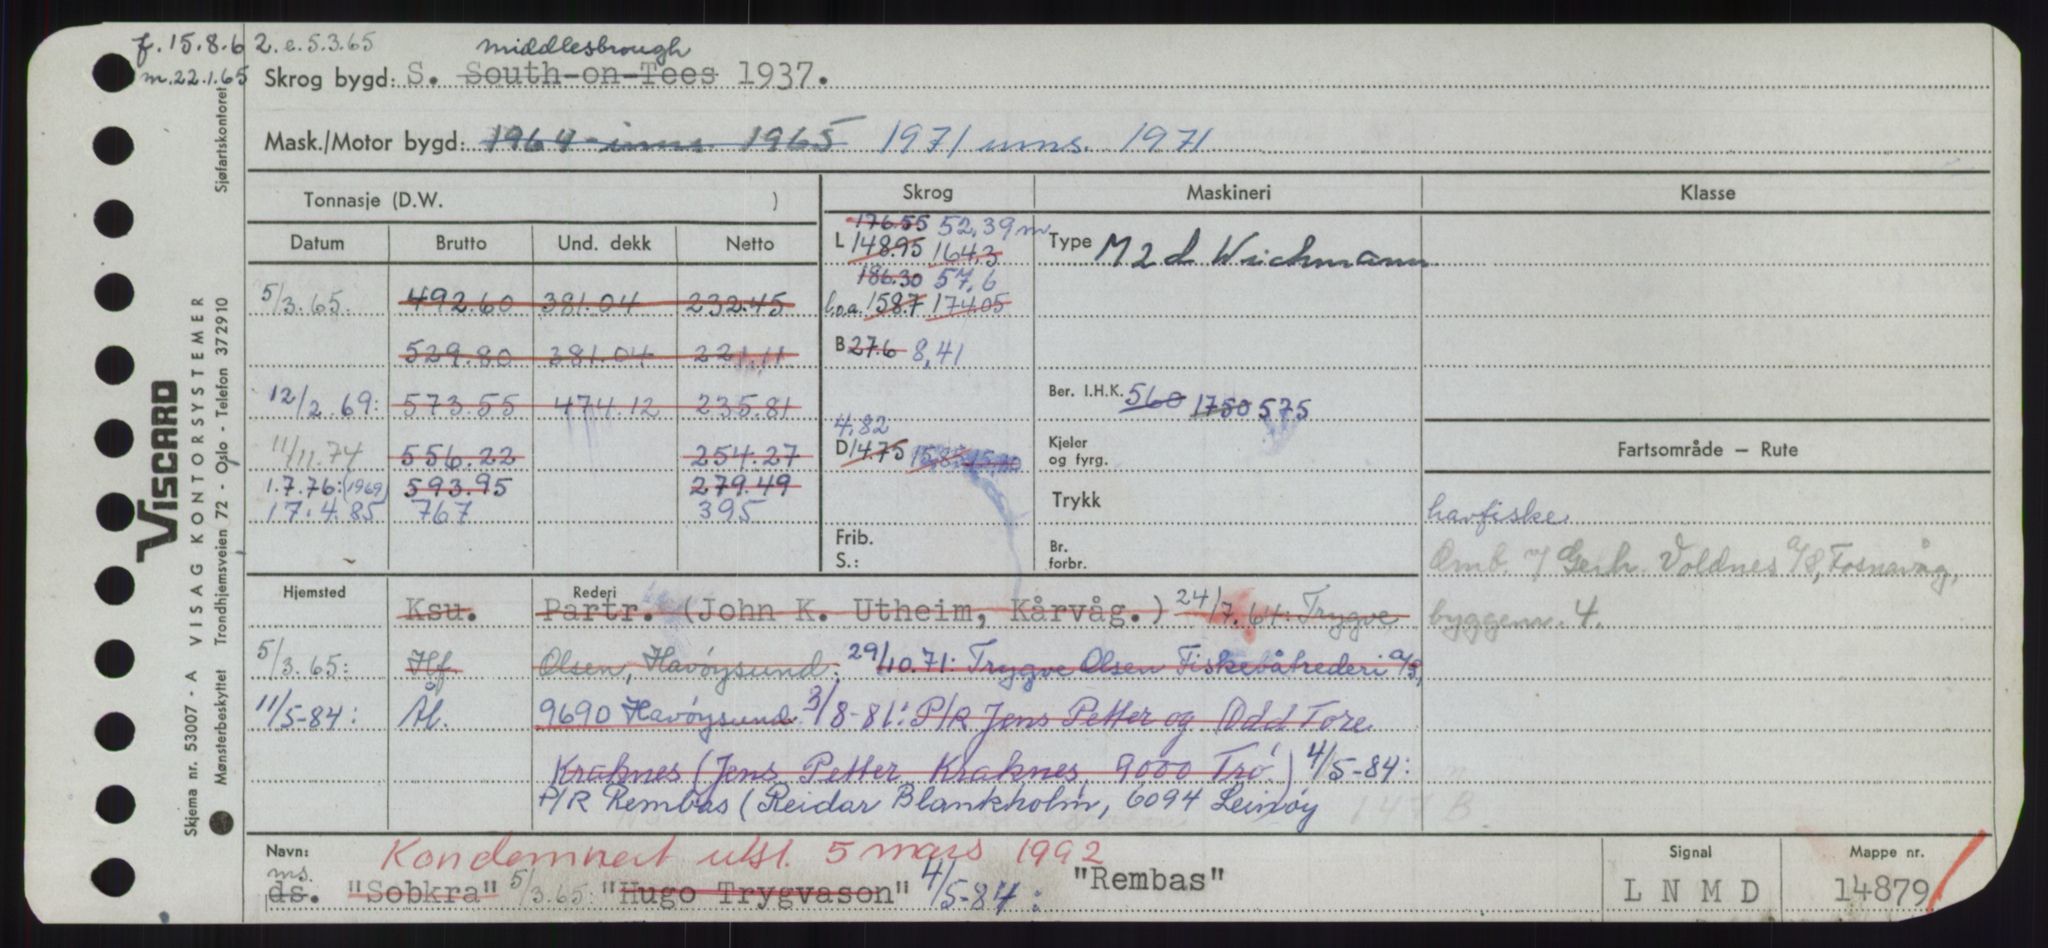 f. 15.8.62. e.5.3.65
m.22.1.65
middlesbrough
Skrog bygd: S. South-on-Tees 1937.
Mask./Motor bygd: 1964 inns. 1965 1971 inns. 1971
Tonnasje (D.W. )
Skrog
Maskineri
Klasse
Datum Brutto Und. dekk Netto
5/3.65. 492.60 381.04 232.45
529.80 381.04 221.11
12/2 69: 573.55 474.12 235.81
11/11.74 556.22 254.27
1.7.76: (1969) 593.95 279.49
17.4.85 767 395
176.55 52,39 m
L 148.95 164.3
186.30 57,6
l.o.a. 158.7 174.05
B 27.6 8,41
4.82
D 14.75 15.85
Frib.
S.:
Type M 2 d Wichmann
Ber. I.H.K. 560 1750 575
Kjeler
og fyrg.
Trykk
Br.
forbr.
Fartsområde – Rute
havfiske
Omb. v/ Gerh. Voldnes A/S, Fosnavåg,
byggenr. 4.
Hjemsted
Rederi
Ksu. Partr. (John K. Utheim, Kårvåg.) 24/7.64: Trygve
5/3.65: Hf Olsen, Havøysund; 29/10.71: Trygve Olsen Fiskebåtrederi A/S,
11/5-84: Ål. 9690 Havøysund 3/8-81: P/R Jens Petter og Odd Tore
Kraknes (Jens Petter Kraknes, 9000 Trö.) 4/5-84:
P/R Rembas (Reidar Blankholm, 6094 Leinøy
147 B
Navn: Kondemnert utsl. 5 mars 1992
ms.
ds. "Sobkra" 5/3.65: "Hugo Trygvason" 4/5-84: "Rembas"
Signal
L N M D
Mappe nr.
14879
VISCARD
Skjema nr. 53007 - A VISAG KONTORSYSTEMER
Mønsterbeskyttet Trondhjemsveien 72 - Oslo - Telefon 372910
Sjøfartskontoret